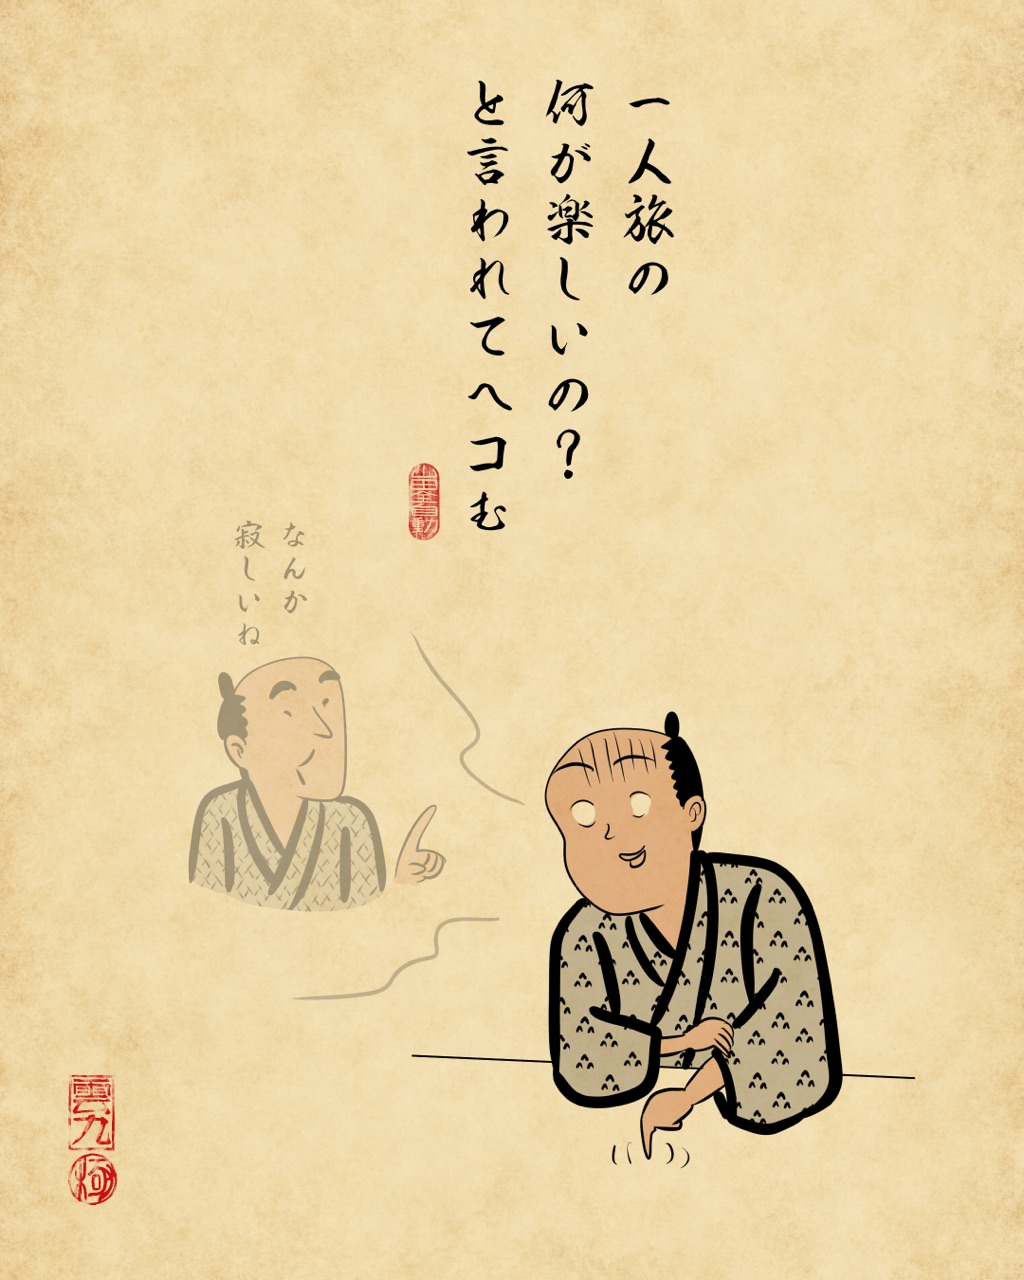 一人旅の
何が楽しいの？
と言われてヘコむ
なんか
寂しいね